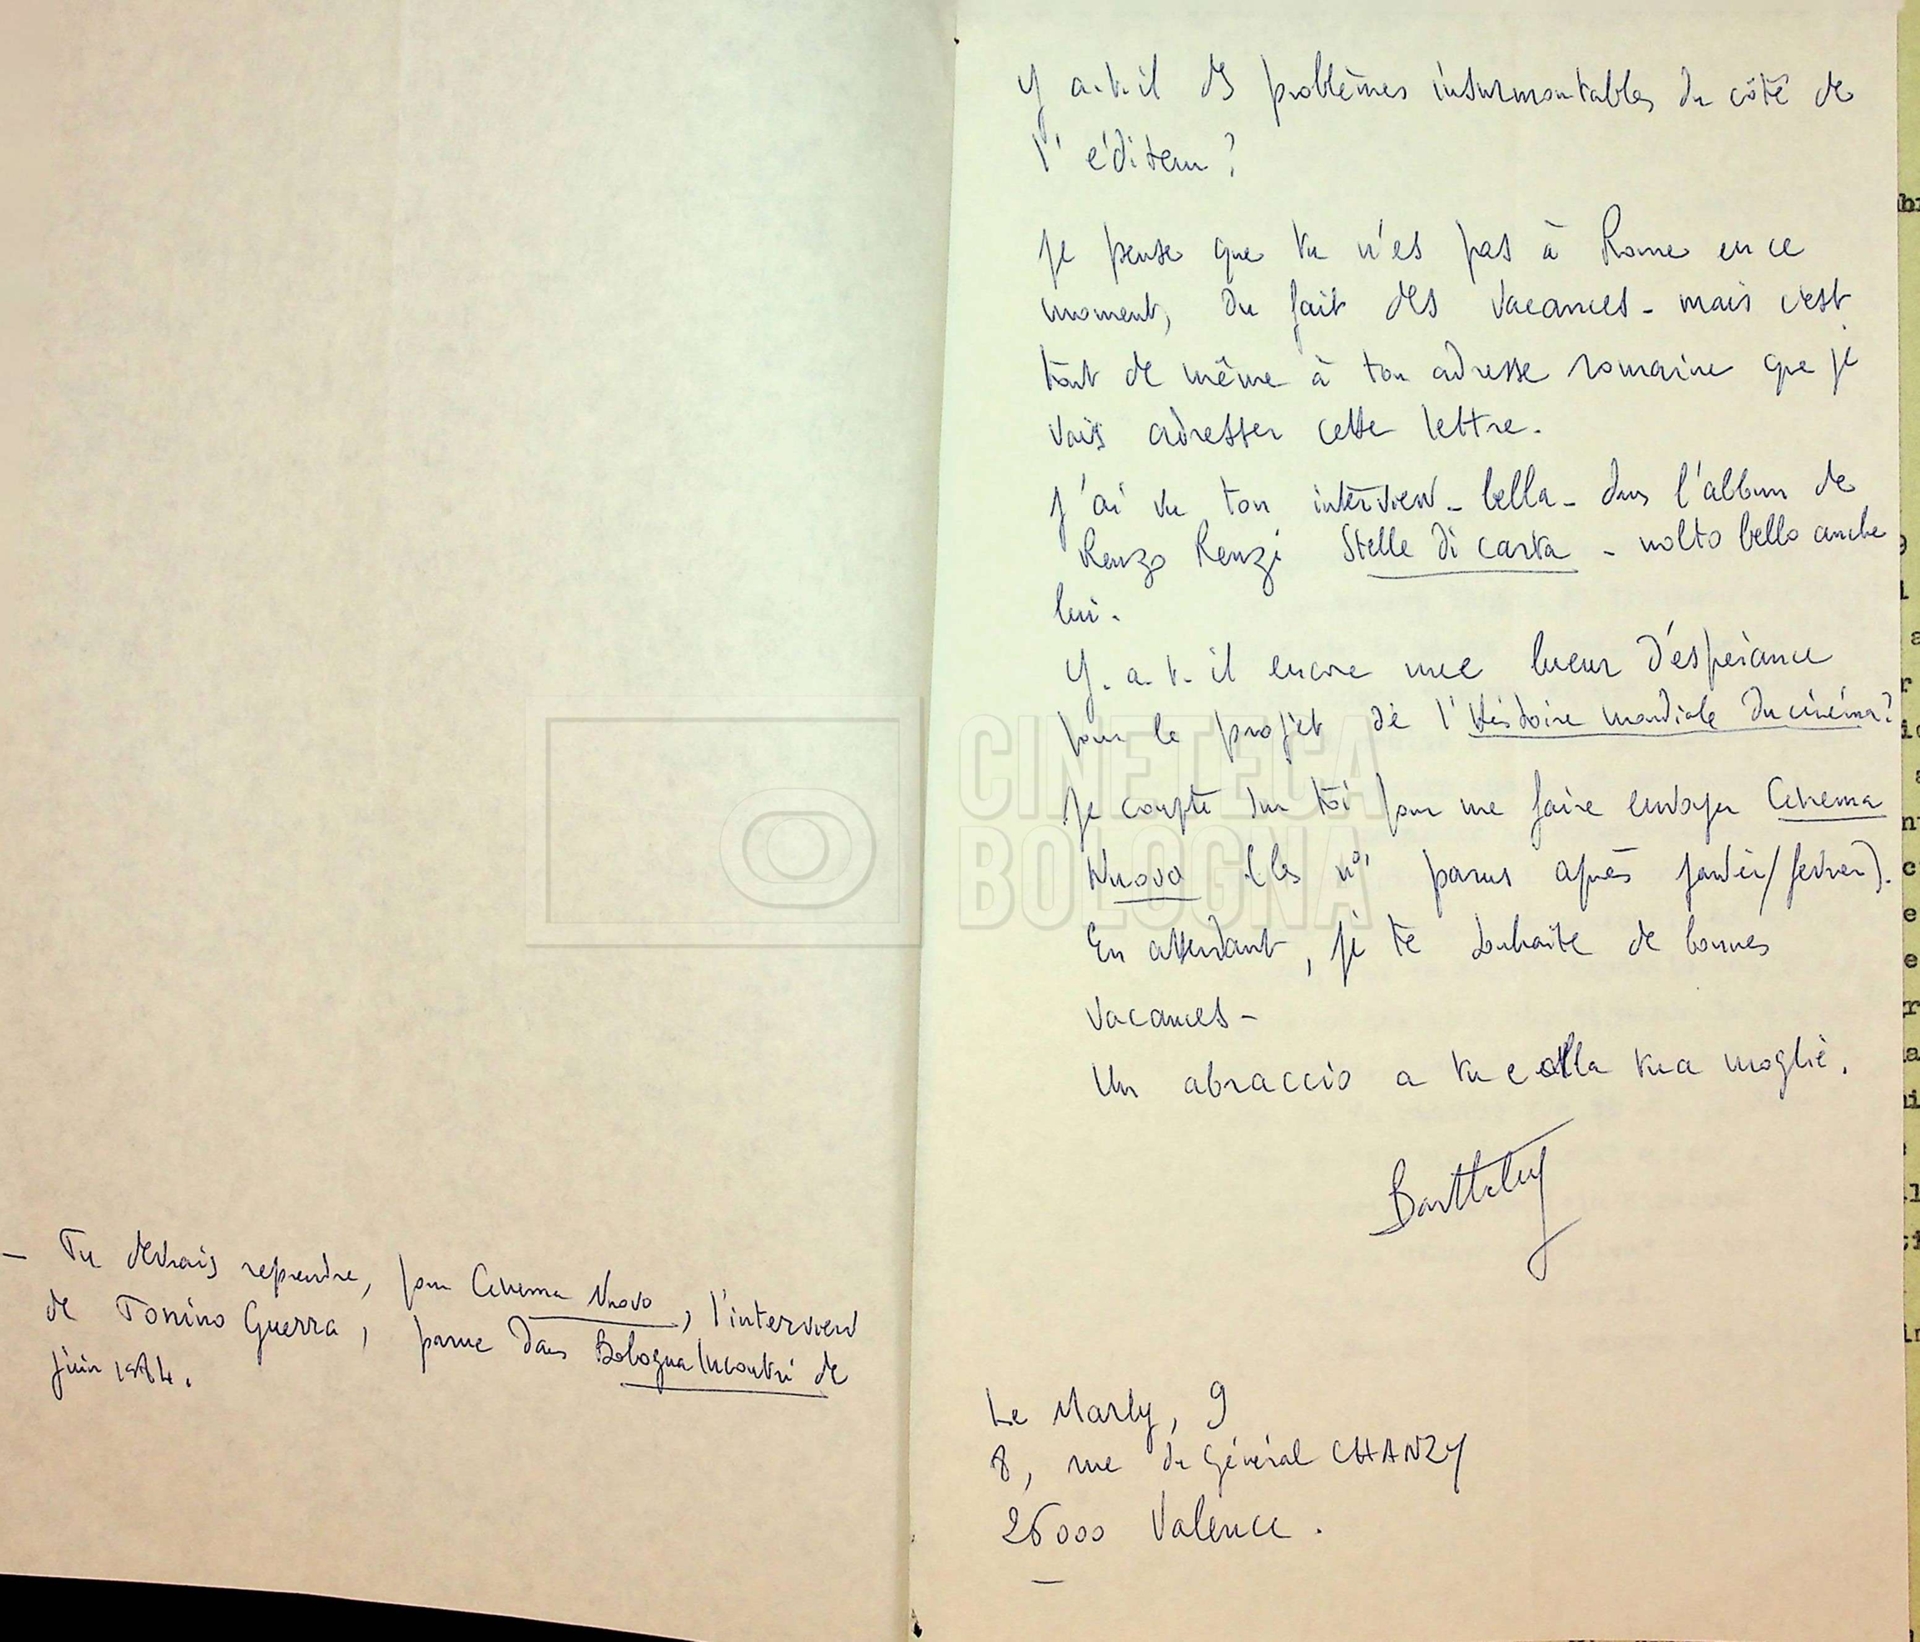 Y a.t.il des problèmes insurmontables du côté de
l'éditeur?
Je pense que tu n'es pas à Rome en ce
moment, du fait des vacances - mais c'est
tout de même à ton adresse romaine que je
vais adresser cette lettre.
J'ai vu ton interview - bella - dans l'album de
Renzo Renzi Stelle di carta - molto bello anche
lui.
Y. a. t. il encore une lueur d'espérance
pour le projet de l'Histoire mondiale du cinéma?
Je compte sur toi pour me faire envoyer Cinema
Nuovo (les nos parus après janvier/février).
En attendant, je te souhaite de bonnes
vacances -
Un abraccio a tu e alla tua moglie.
Barthélemy
Le Marly, 9
8, rue du Général CHANZY
26000 Valence.
- Tu devrais reprendre, pour Cinema Nuovo, l'interview
de Tonino Guerra, parue dans Bologna Incontri de
juin 1984.
CINETECA
BOLOGNA